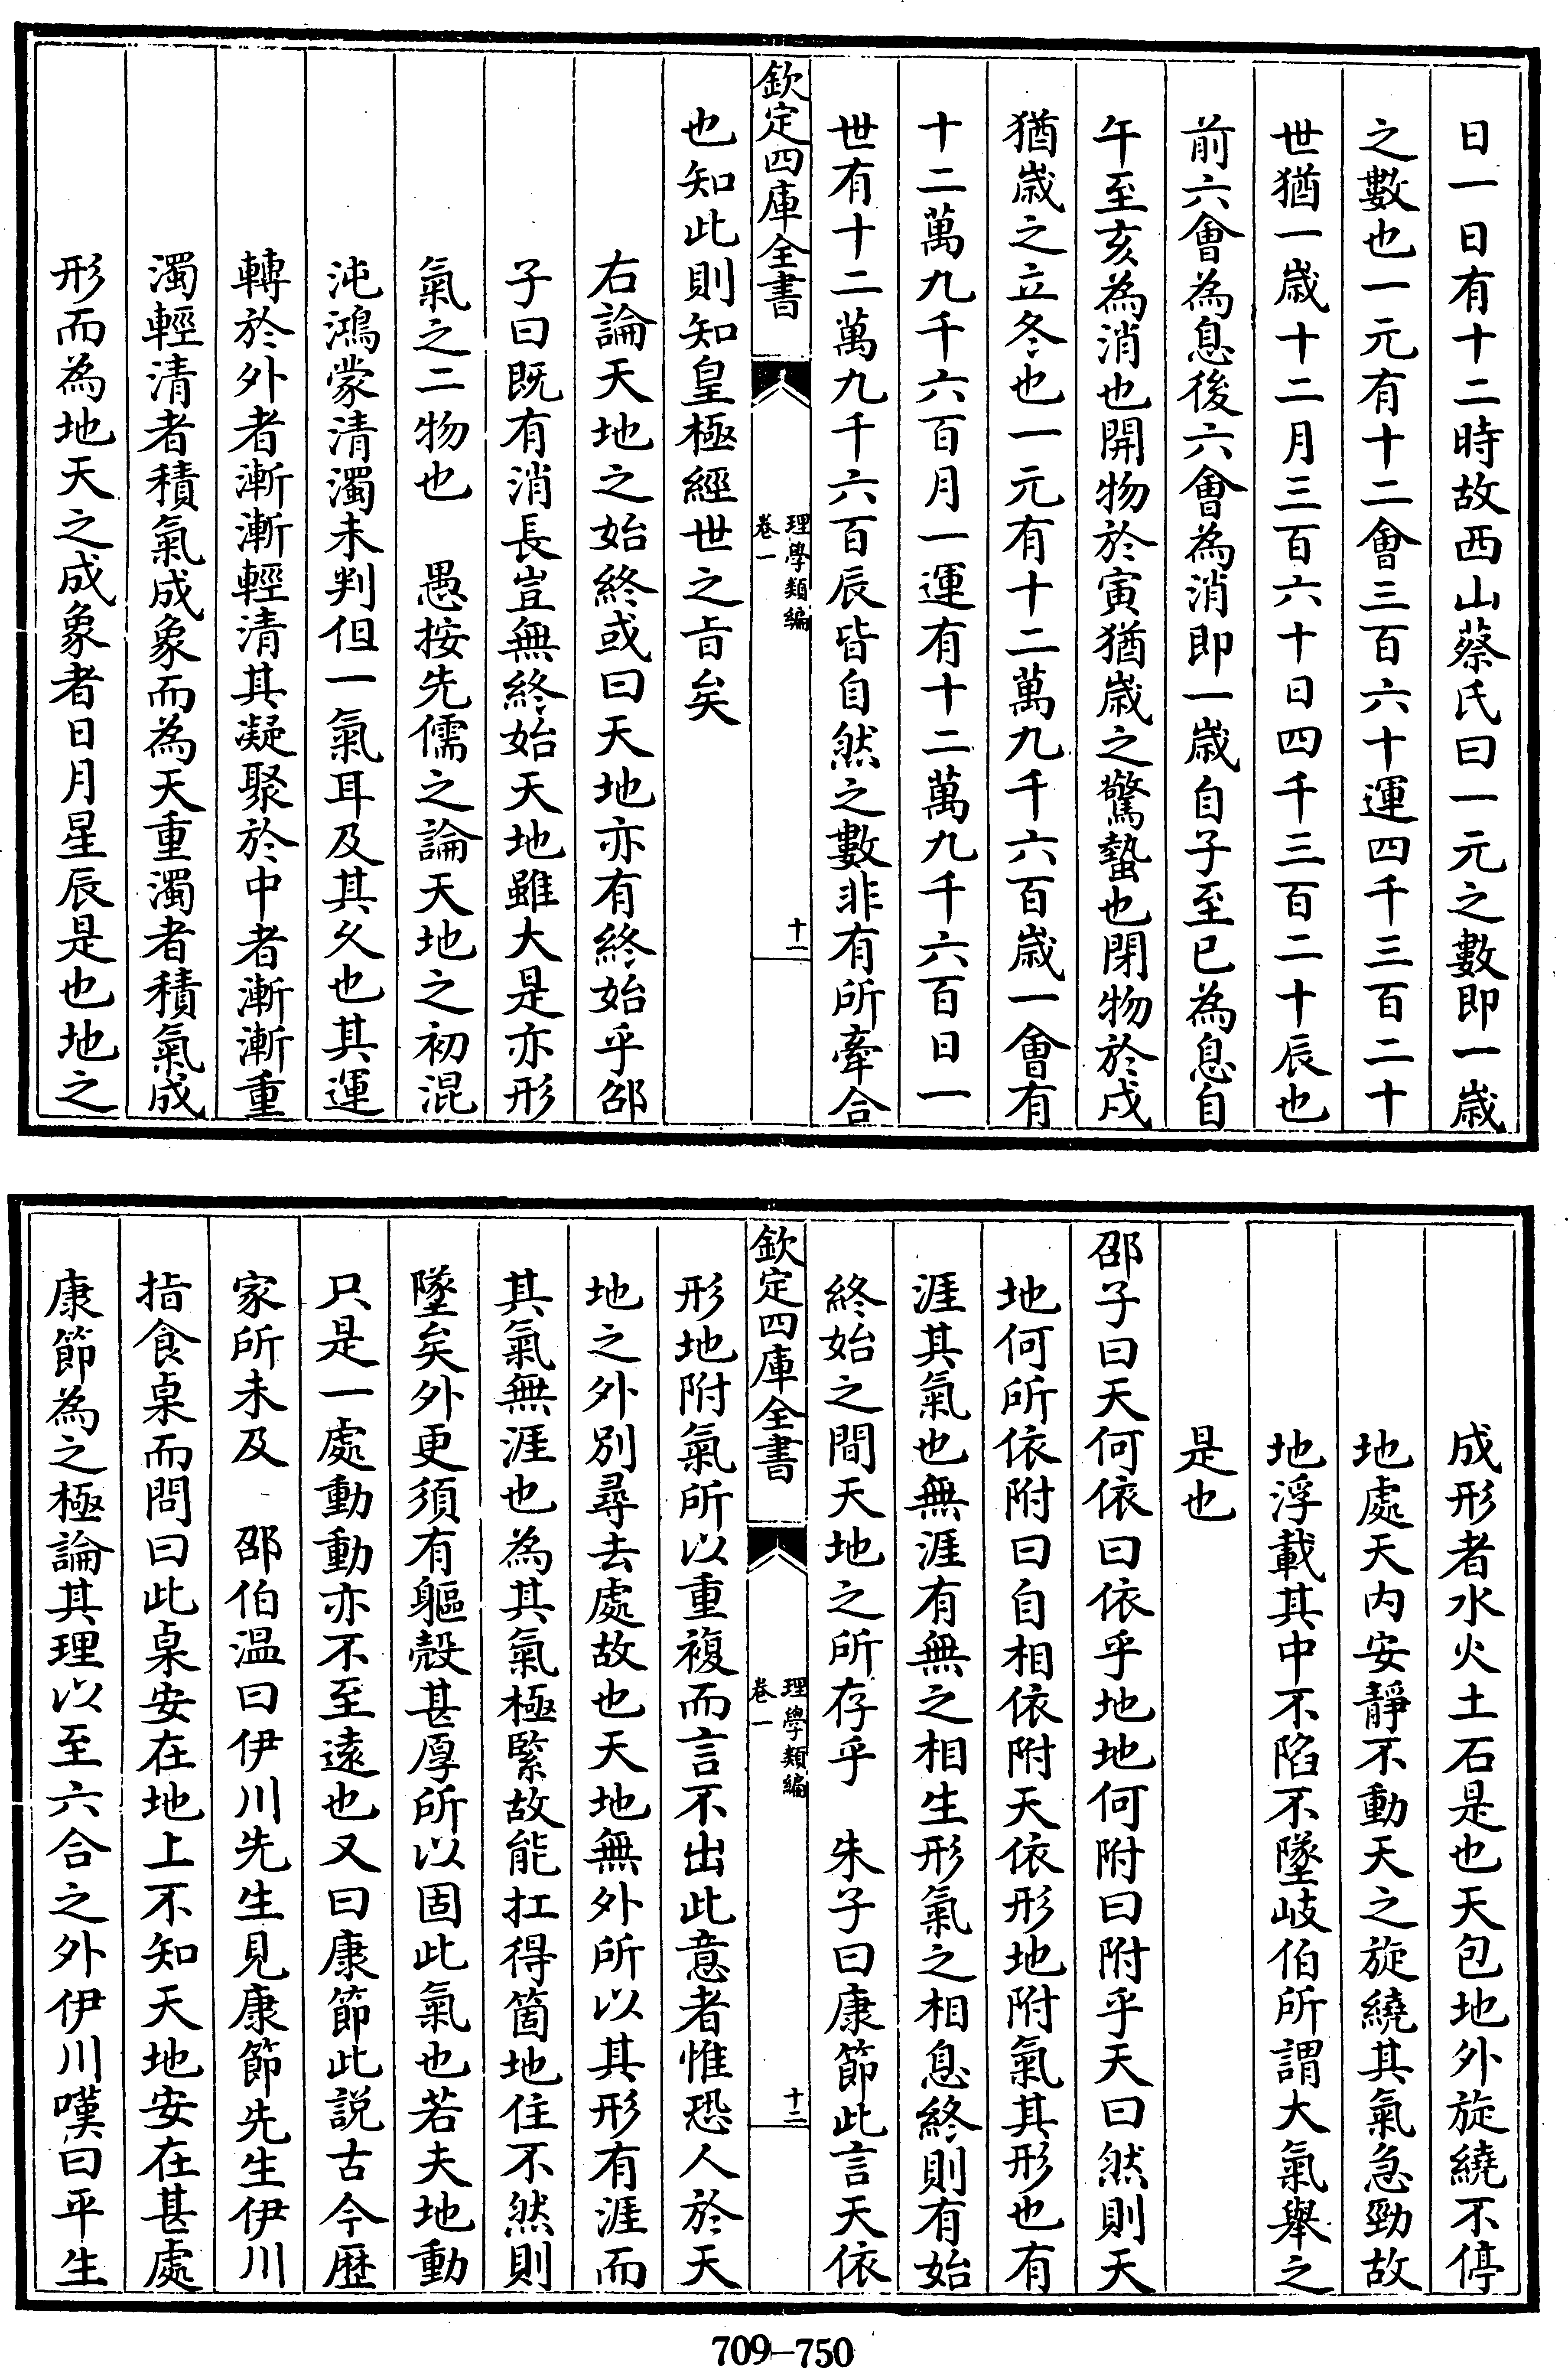 日一日有十二時故西山蔡氏曰一元之數即一歲
之數也一元有十二會三百六十運四千三百二十
世猶一歲十二月三百六十日四千三百二十辰也
前六會為息後六會為消即一歲自子至巳為息自
午至亥為消也開物於寅猶歲之驚蟄也閉物於戌
猶歲之立冬也一元有十二萬九千六百歲一會有
十二萬九千六百月一運有十二萬九千六百日一
世有十二萬九千六百辰皆自然之數非有所牽合
欽定四庫全書
理學類編
卷一
十一
也知此則知皇極經世之㫖矣
右論天地之始終或曰天地亦有終始乎邵
子曰既有消長豈無終始天地雖大是亦形
氣之二物也 愚按先儒之論天地之初混
沌鴻蒙清濁未判但一氣耳及其久也其運
轉於外者漸漸輕清其凝聚於中者漸漸重
濁輕清者積氣成象而為天重濁者積氣成
形而為地天之成象者日月星辰是也地之
成形者水火土石是也天包地外旋繞不停
地處天内安靜不動天之旋繞其氣急勁故
地浮載其中不陷不墜岐伯所謂大氣舉之
是也
邵子曰天何依曰依乎地地何附曰附乎天曰然則天
地何所依附曰自相依附天依形地附氣其形也有
涯其氣也無涯有無之相生形氣之相息終則有始
終始之間天地之所存乎 朱子曰康節此言天依
欽定四庫全書
理學類編
卷一
十二
形地附氣所以重複而言不出此意者惟恐人於天
地之外别尋去處故也天地無外所以其形有涯而
其氣無涯也為其氣極緊故能扛得箇地住不然則
墜矣外更須有軀殼甚厚所以固此氣也若夫地動
只是一處動動亦不至遠也又曰康節此説古今歴
家所未及 邵伯温曰伊川先生見康節先生伊川
指食桌而問曰此桌安在地上不知天地安在甚處
康節為之極論其理以至六合之外伊川嘆曰平生
709-750